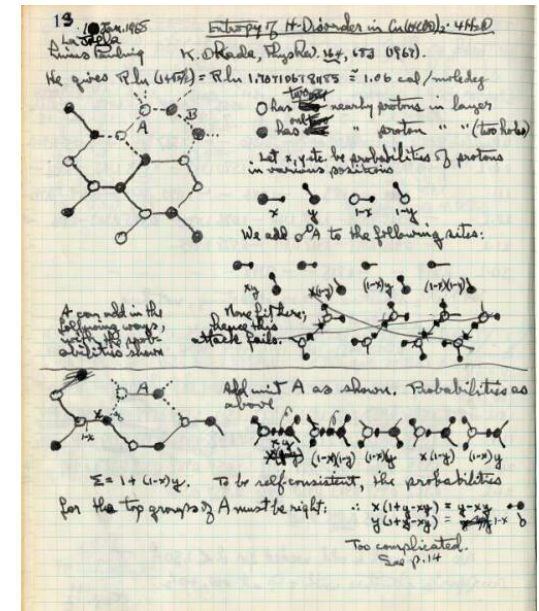 13
Jan. 1968
La Jolla
Linus Pauling
Entropy of H-Disorder in Cu(HCO2)2·4H2O
K. Okada, Phys. Rev. 164, 683 (1967).
He gives R ln (1+√2/2) = R ln 1.7071067 ≅ 1.06 cal/mole deg
A
B
O has two nearby protons in layer
● has only " proton " " (two holes)
Let x, y etc. be probabilities of protons
in various positions
x y 1-x 1-y
We add A to the following sites:
xy x(1-y) (1-x)y (1-x)(1-y)
A can add in the
following ways,
with the prob-
abilities shown
None fit here;
hence this
attack fails.
Add unit A as shown. Probabilities as
above
A
1-x
xy
(1-x)(1-y) (1-x)y x(1-y) (1-x)y
Σ = 1 + (1-x)y. To be self-consistent, the probabilities
for the top groups of A must be right: ∴ x(1+y-xy) = y-xy
y(1+y-xy) = 1-x
Too complicated.
See p. 14